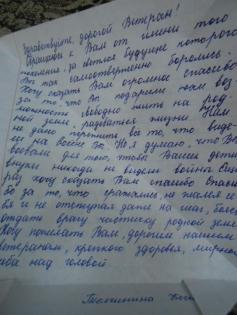 Здравствуйте, дорогой Ветеран!
Обращаюсь к Вам от имени того
поколения, за светлое будущее которого
Вы так самоотверженно боролись.
Хочу сказать Вам огромное спасибо
за то, что Вы подарили нам воз
можность свободно жить на род
ной земле, радоваться жизни. Нам
не дано пережить все то, что виде
ли на войне Вы. Я думаю, что Вы
воевали для того, чтобы Ваши дети
внуки никогда не видели войны. Ещё
раз хочу сказать Вам спасибо. Спаси
бо за то, что сражались, не жалея се
бя и не отступая даже на шаг, боясь
отдать врагу частичку родной земли.
Хочу пожелать Вам, дорогим нашим
ветеранам, крепкого здоровья, мирного
неба над головой.